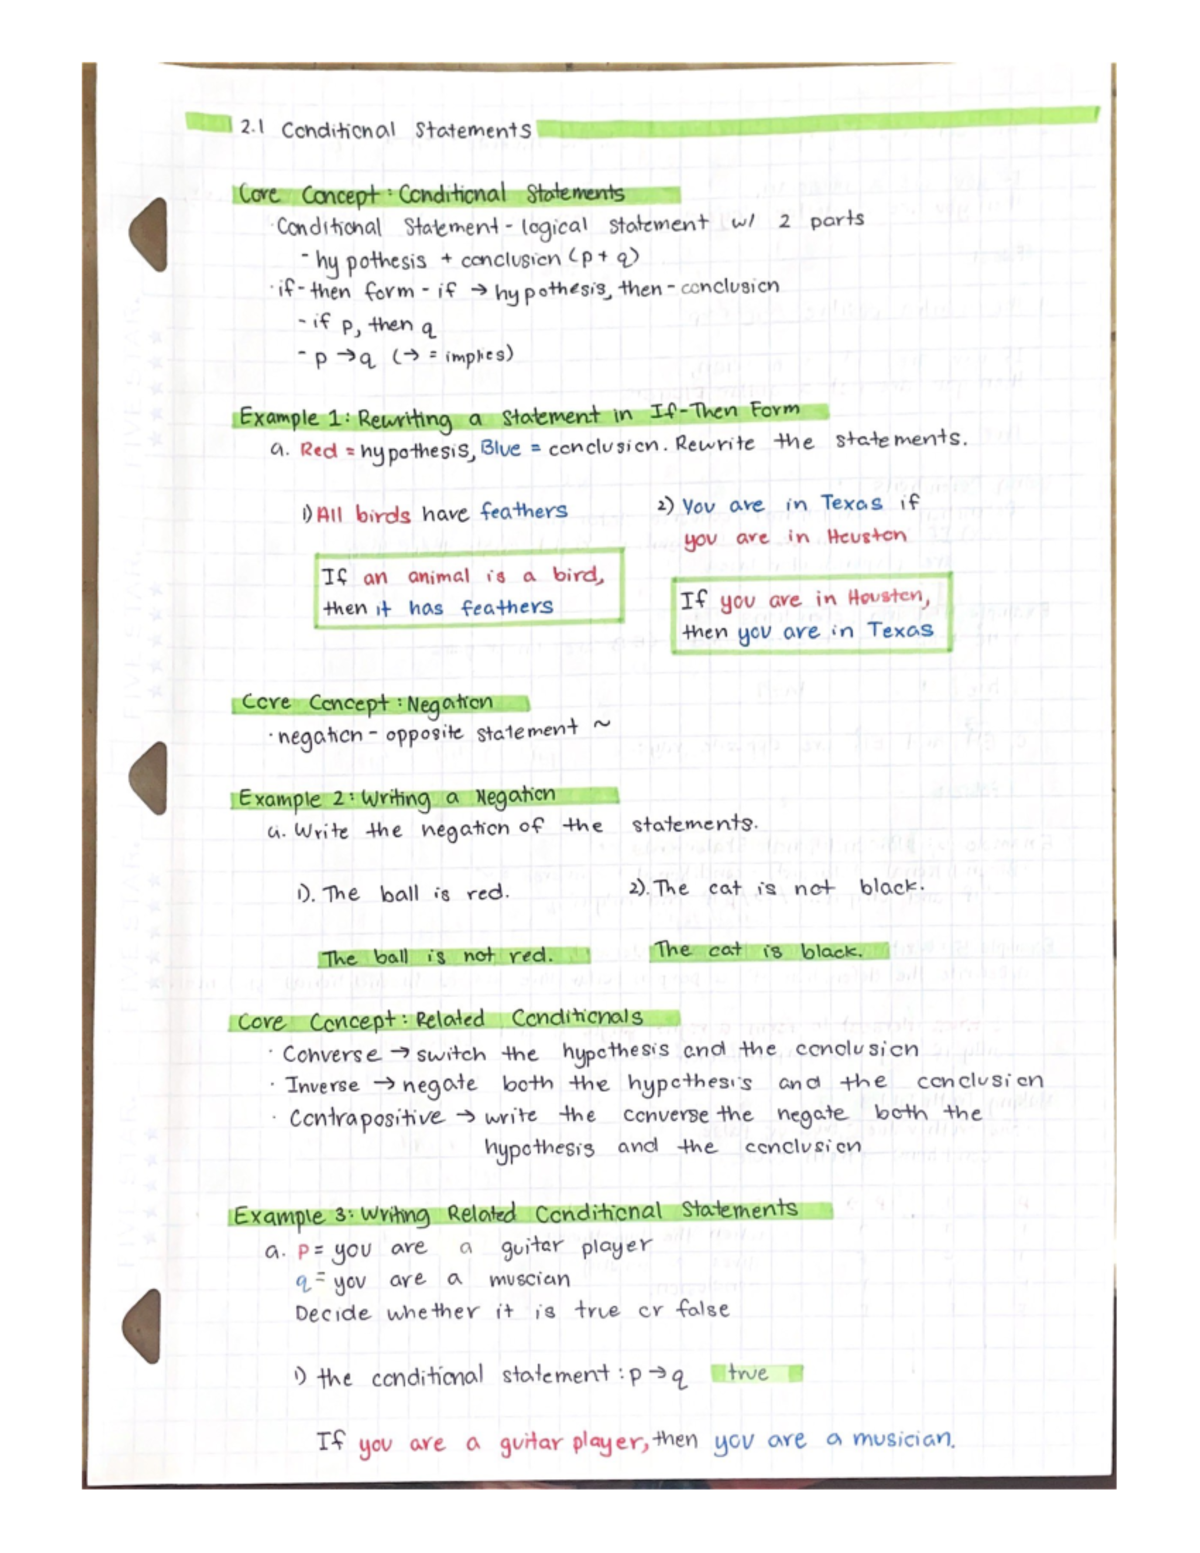 2.1 Conditional Statements
Core Concept: Conditional Statements
· Conditional Statement - logical statement w/ 2 parts
- hypothesis + conclusion (p + q)
· if-then form - if → hypothesis, then - conclusion
- if p, then q
- p → q (→ = implies)
Example 1: Rewriting a Statement in If-Then Form
a. Red = hypothesis, Blue = conclusion. Rewrite the statements.
1) All birds have feathers
If an animal is a bird,
then it has feathers
2) You are in Texas if
you are in Houston
If you are in Houston,
then you are in Texas
Core Concept: Negation
· negation - opposite statement ~
Example 2: Writing a Negation
a. Write the negation of the statements.
1). The ball is red.
2). The cat is not black.
The ball is not red.
The cat is black.
Core Concept: Related Conditionals
· Converse → switch the hypothesis and the conclusion
· Inverse → negate both the hypothesis and the conclusion
· Contrapositive → write the converse the negate both the
hypothesis and the conclusion
Example 3: Writing Related Conditional Statements
a. p = you are a guitar player
q = you are a muscian
Decide whether it is true or false
1) the conditional statement: p → q true
If you are a guitar player, then you are a musician.